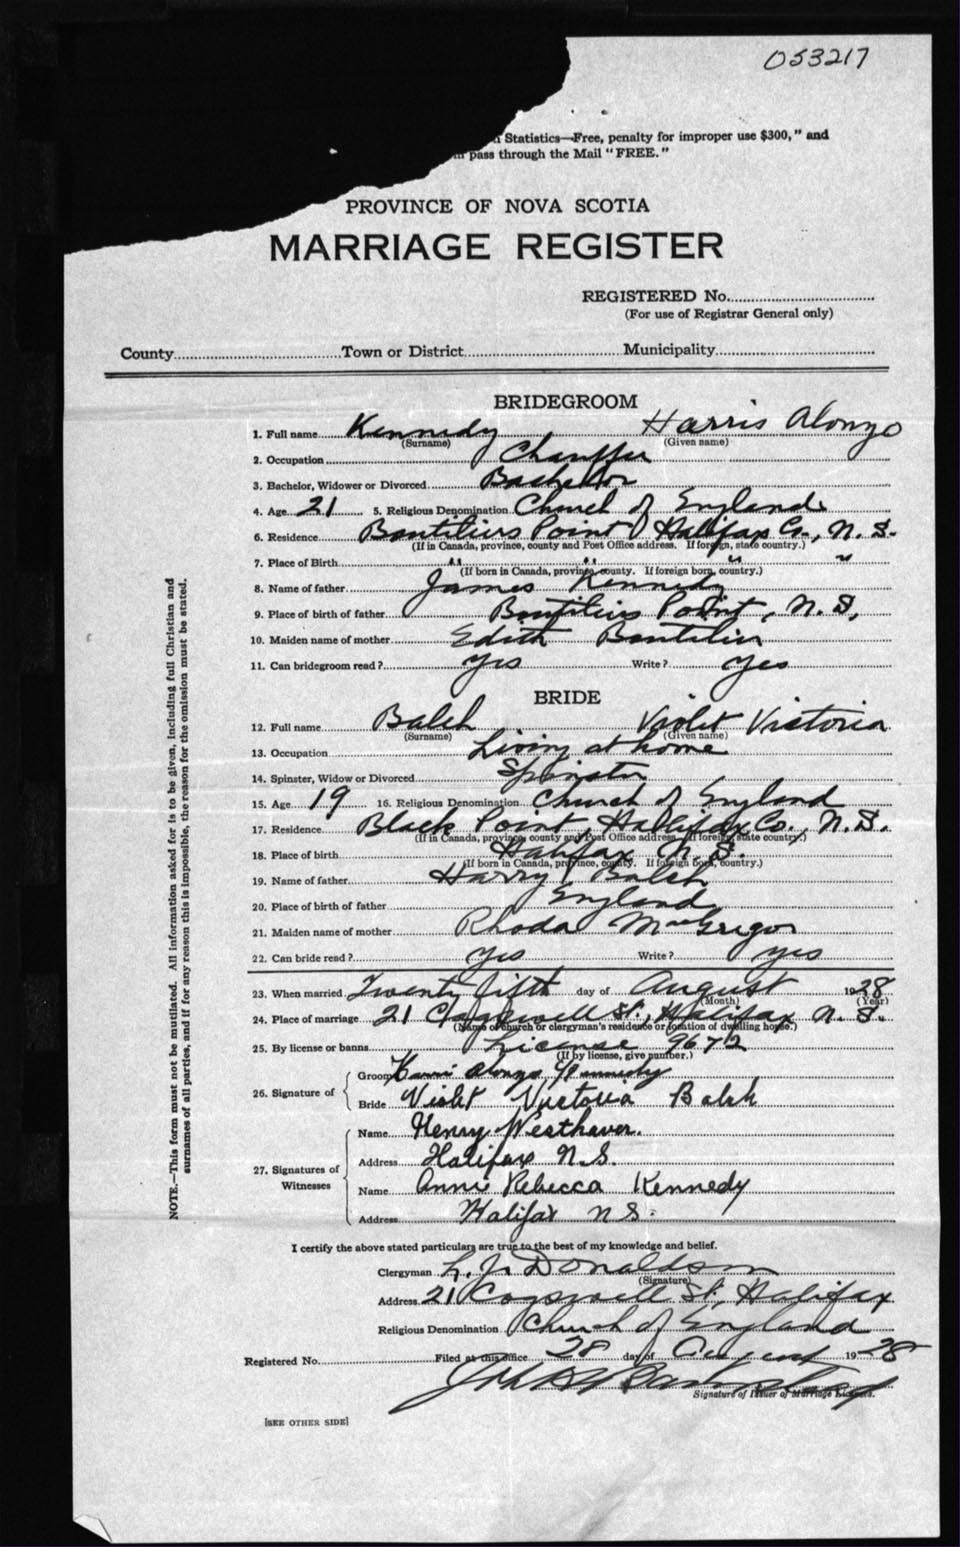 053217
Statistics—Free, penalty for improper use $300," and
pass through the Mail "FREE."
PROVINCE OF NOVA SCOTIA
MARRIAGE REGISTER
REGISTERED No.
(For use of Registrar General only)
County Town or District Municipality
BRIDEGROOM
1. Full name Kennedy Harris Alonzo
(Surname) (Given name)
2. Occupation Chauffer
3. Bachelor, Widower or Divorced Bachelor
4. Age 21 5. Religious Denomination Church of England
6. Residence Boutiliers Point Halifax Co., N. S.
(If in Canada, province, county and Post Office address. If foreign, state country.)
7. Place of Birth " " " "
(If born in Canada, province, county. If foreign born, country.)
8. Name of father James Kennedy
9. Place of birth of father Boutiliers Point, N. S,
10. Maiden name of mother Edith Boutilier
11. Can bridegroom read? Yes Write? Yes
BRIDE
12. Full name Balsh Violet Victoria
(Surname) (Given name)
13. Occupation Living at home
14. Spinster, Widow or Divorced Spinster
15. Age 19 16. Religious Denomination Church of England
17. Residence Black Point, Halifax Co., N. S.
(If in Canada, province, county and Post Office address, If foreign, state country.)
18. Place of birth Halifax N. S.
(If born in Canada, province, county. If foreign born, country.)
19. Name of father Harry Balsh
20. Place of birth of father England
21. Maiden name of mother Rhoda MacGregor
22. Can bride read? Yes Write? Yes
23. When married Twenty fifth day of August 1928
(Month) (Year)
24. Place of marriage 21 Cogswell St., Halifax N. S.
(Name of church or clergyman's residence or location of dwelling house.)
25. By license or banns License 9672
(If by license, give number.)
26. Signature of Groom Harris Alonzo Kennedy
Bride Violet Victoria Balsh
27. Signatures of Witnesses Name Henry Westhaver.
Address Halifax N.S.
Name Annie Rebecca Kennedy
Address Halifax N S.
I certify the above stated particulars are true to the best of my knowledge and belief.
Clergyman L. J. Donaldson
(Signature)
Address 21 Cogswell St, Halifax
Religious Denomination Church of England
Registered No. Filed at this office 28 day of August 1928
Signature of Issuer of Marriage Licenses.
[SEE OTHER SIDE]
NOTE.—This form must not be mutilated. All information asked for is to be given, including full Christian and
surnames of all parties, and if for any reason this is impossible, the reason for the omission must be stated.